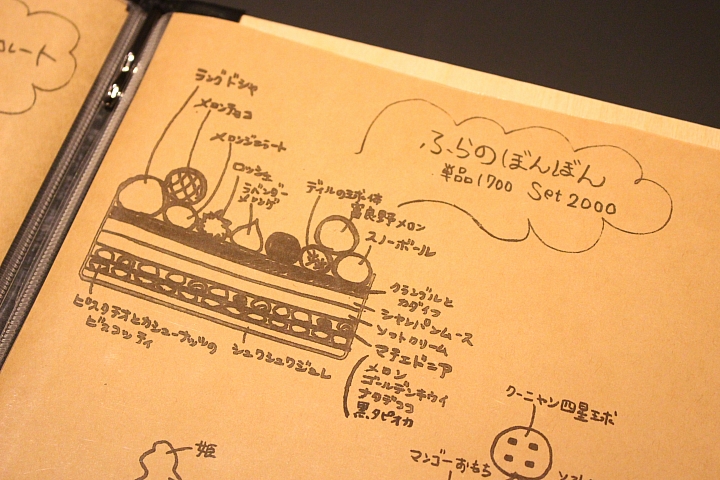 コレート
ラングドシャ
メロンチョコ
メロンジェラート
ロッシェ
ラベンダー
メレンゲ
ディルの球体
富良野メロン
スノーボール
ふらのぼんぼん
単品1700 Set 2000
クランブルと
カダイフ
シャンパンムース
ソフトクリーム
マチェドニア
メロン
ゴールデンキウイ
ナタデココ
黒タピオカ
ピスタチオとカシューナッツの
ビスコッティ
シュワシュワジュレ
クーニャン四星球
マンゴーおもち
姫